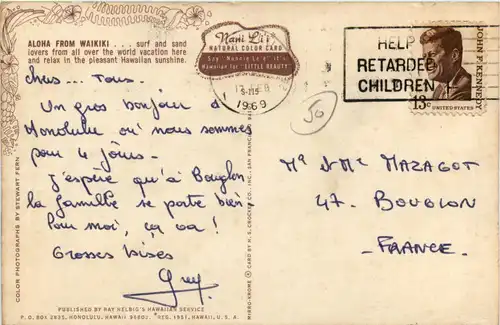 ALOHA FROM WAIKIKI . . . surf and sand
lovers from all over the world vacation here
and relax in the pleasant Hawaiian sunshine.
Nani Li'i
NATURAL COLOR CARD
Say "Nahnie Le'e" it's
Hawaiian for "LITTLE BEAUTY"
1969
HELP
RETARDED
CHILDREN
JOHN F. KENNEDY
13c
UNITED STATES
50
Chers ... Tous.
Un gros bonjour d'
Honolulu où nous sommes
pour 4 jours.
J'espère qu'à Bouglon
la famille se porte bien.
Pour moi, ça va!
Grosses bises
Guy
Mr & Mme MAZAGOT
47. BOUGLON
- FRANCE -
COLOR PHOTOGRAPHS BY STEWART FERN
MIRRO-KROME ® CARD BY H. S. CROCKER CO., INC., SAN FRANCISCO
PUBLISHED BY RAY HELBIG'S HAWAIIAN SERVICE
P. O. BOX 2835, HONOLULU, HAWAII 96803 ® REG. 1951, HAWAII, U. S. A.